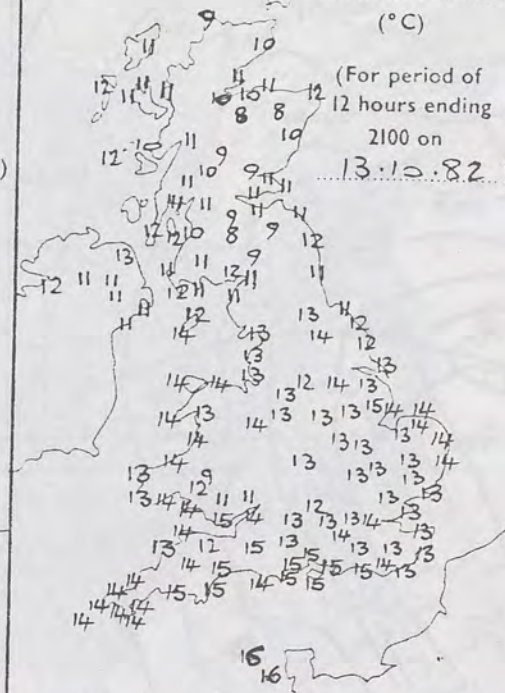 (°C)
9
(For period of
12 hours ending
2100 on
13.10.82
11 10
12 11 11 11 11 11 12
11 10 10
8 8
10
12 10 11
10 9 9
11 11 11
14 11 9 11 11
12 12 10 8 9 12
13
11 11 12 9 11
12 11 11
12 11 11 11 11
11
12 14 13 11
14 12
13 12
13 13
13
14 14 13 12 14 13
14 13 14 13 13 13 15 14 14
14
14 13 13 13 14
14 13 13 13 13 14
13 9 13
13 14 12 11 11 13 13
14 15 14 12 13
14 13 13 13 14 13
13 12 15 13 14 13 13 13
14 15 15 15 15 15 14 13
14 15 15 14 15 15
14 14 14
14 14
16
16